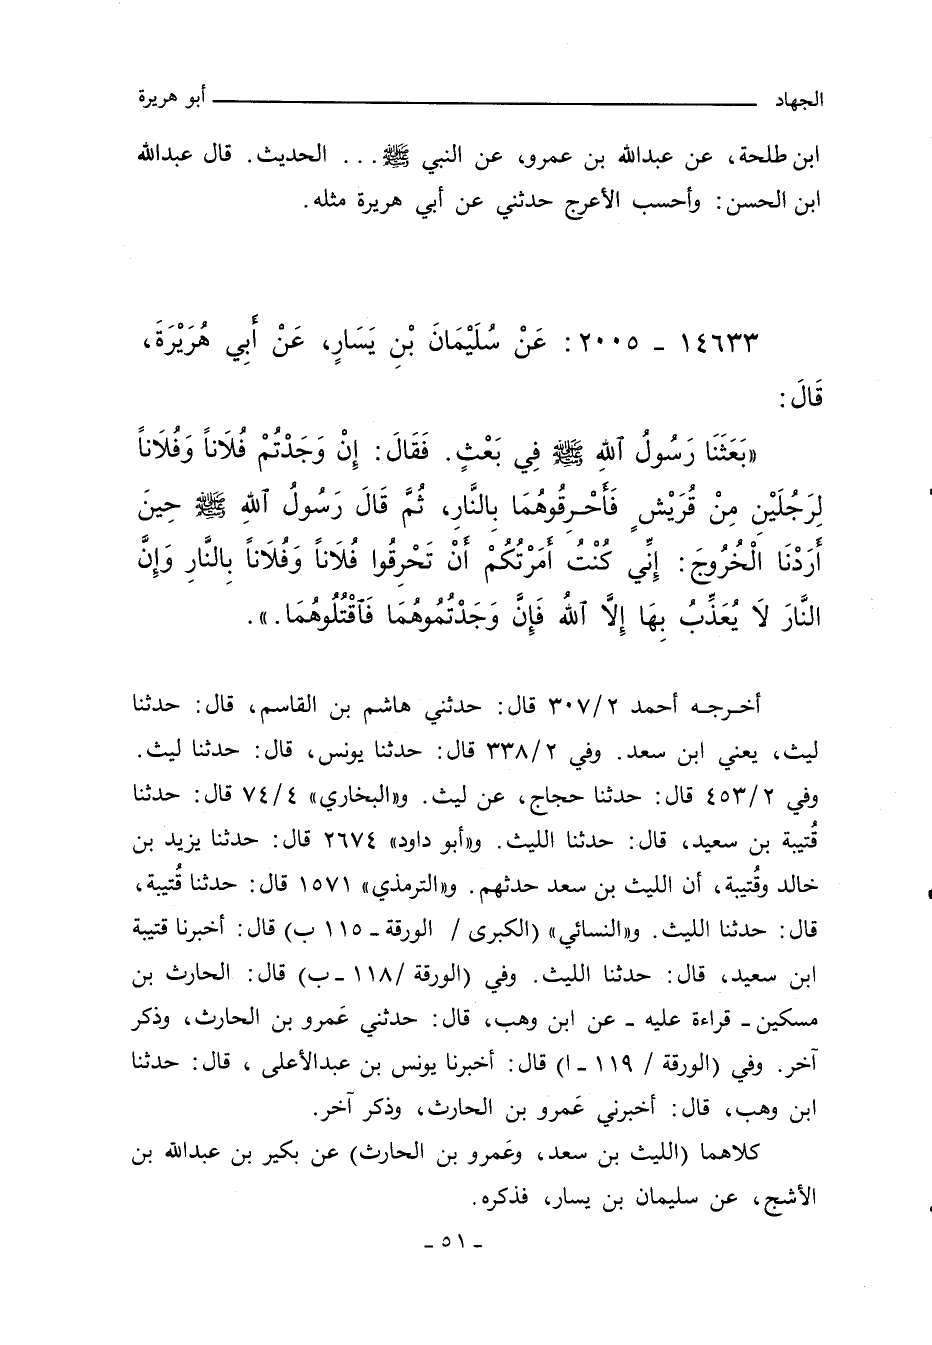 الجهاد ــــــــ أبو هريرة
ابن طلحة، عن عبدالله بن عمرو، عن النبي ﷺ... الحديث. قال عبدالله
ابن الحسن: وأحسب الأعرج حدثني عن أبي هريرة مثله.
١٤٦٣٣ ـ ٢٠٠٥: عَنْ سُلَيْمَانَ بْنِ يَسَارٍ، عَنْ أَبِي هُرَيْرَةَ،
قَالَ:
«بَعَثَنَا رَسُولُ ٱللهِ ﷺ فِي بَعْثٍ. فَقَالَ: إِنْ وَجَدْتُمْ فُلَاناً وَفُلَاناً
لِرَجُلَيْنِ مِنْ قُرَيْشٍ فَأَحْرِقُوهُمَا بِالنَّارِ، ثُمَّ قَالَ رَسُولُ ٱللهِ ﷺ حِينَ
أَرَدْنَا الْخُرُوجَ: إِنِّي كُنْتُ أَمَرْتُكُمْ أَنْ تَحْرِقُوا فُلَاناً وَفُلَاناً بِالنَّارِ وَإِنَّ
النَّارَ لَا يُعَذِّبُ بِهَا إِلَّا ٱللهُ فَإِنَّ وَجَدْتُمُوهُمَا فَٱقْتُلُوهُمَا.».
أخرجه أحمد ٣٠٧/٢ قال: حدثني هاشم بن القاسم، قال: حدثنا
ليث، يعني ابن سعد. وفي ٣٣٨/٢ قال: حدثنا يونس، قال: حدثنا ليث.
وفي ٤٥٣/٢ قال: حدثنا حجاج، عن ليث. و«البخاري» ٧٤/٤ قال: حدثنا
قُتيبة بن سعيد، قال: حدثنا الليث. و«أبو داود» ٢٦٧٤ قال: حدثنا يزيد بن
خالد وقُتيبة، أن الليث بن سعد حدثهم. و«الترمذي» ١٥٧١ قال: حدثنا قُتيبة،
قال: حدثنا الليث. و«النسائي» (الكبرى / الورقة ـ ١١٥ ب) قال: أخبرنا قتيبة
ابن سعيد، قال: حدثنا الليث. وفي (الورقة /١١٨ ـ ب) قال: الحارث بن
مسكين ـ قراءة عليه ـ عن ابن وهب، قال: حدثني عَمرو بن الحارث، وذكر
آخر. وفي (الورقة / ١١٩ ـ ا) قال: أخبرنا يونس بن عبدالأعلى، قال: حدثنا
ابن وهب، قال: أخبرني عَمرو بن الحارث، وذكر آخر.
كلاهما (الليث بن سعد، وعَمرو بن الحارث) عن بكير بن عبدالله بن
الأشج، عن سليمان بن يسار، فذكره.
ـ ٥١ ـ